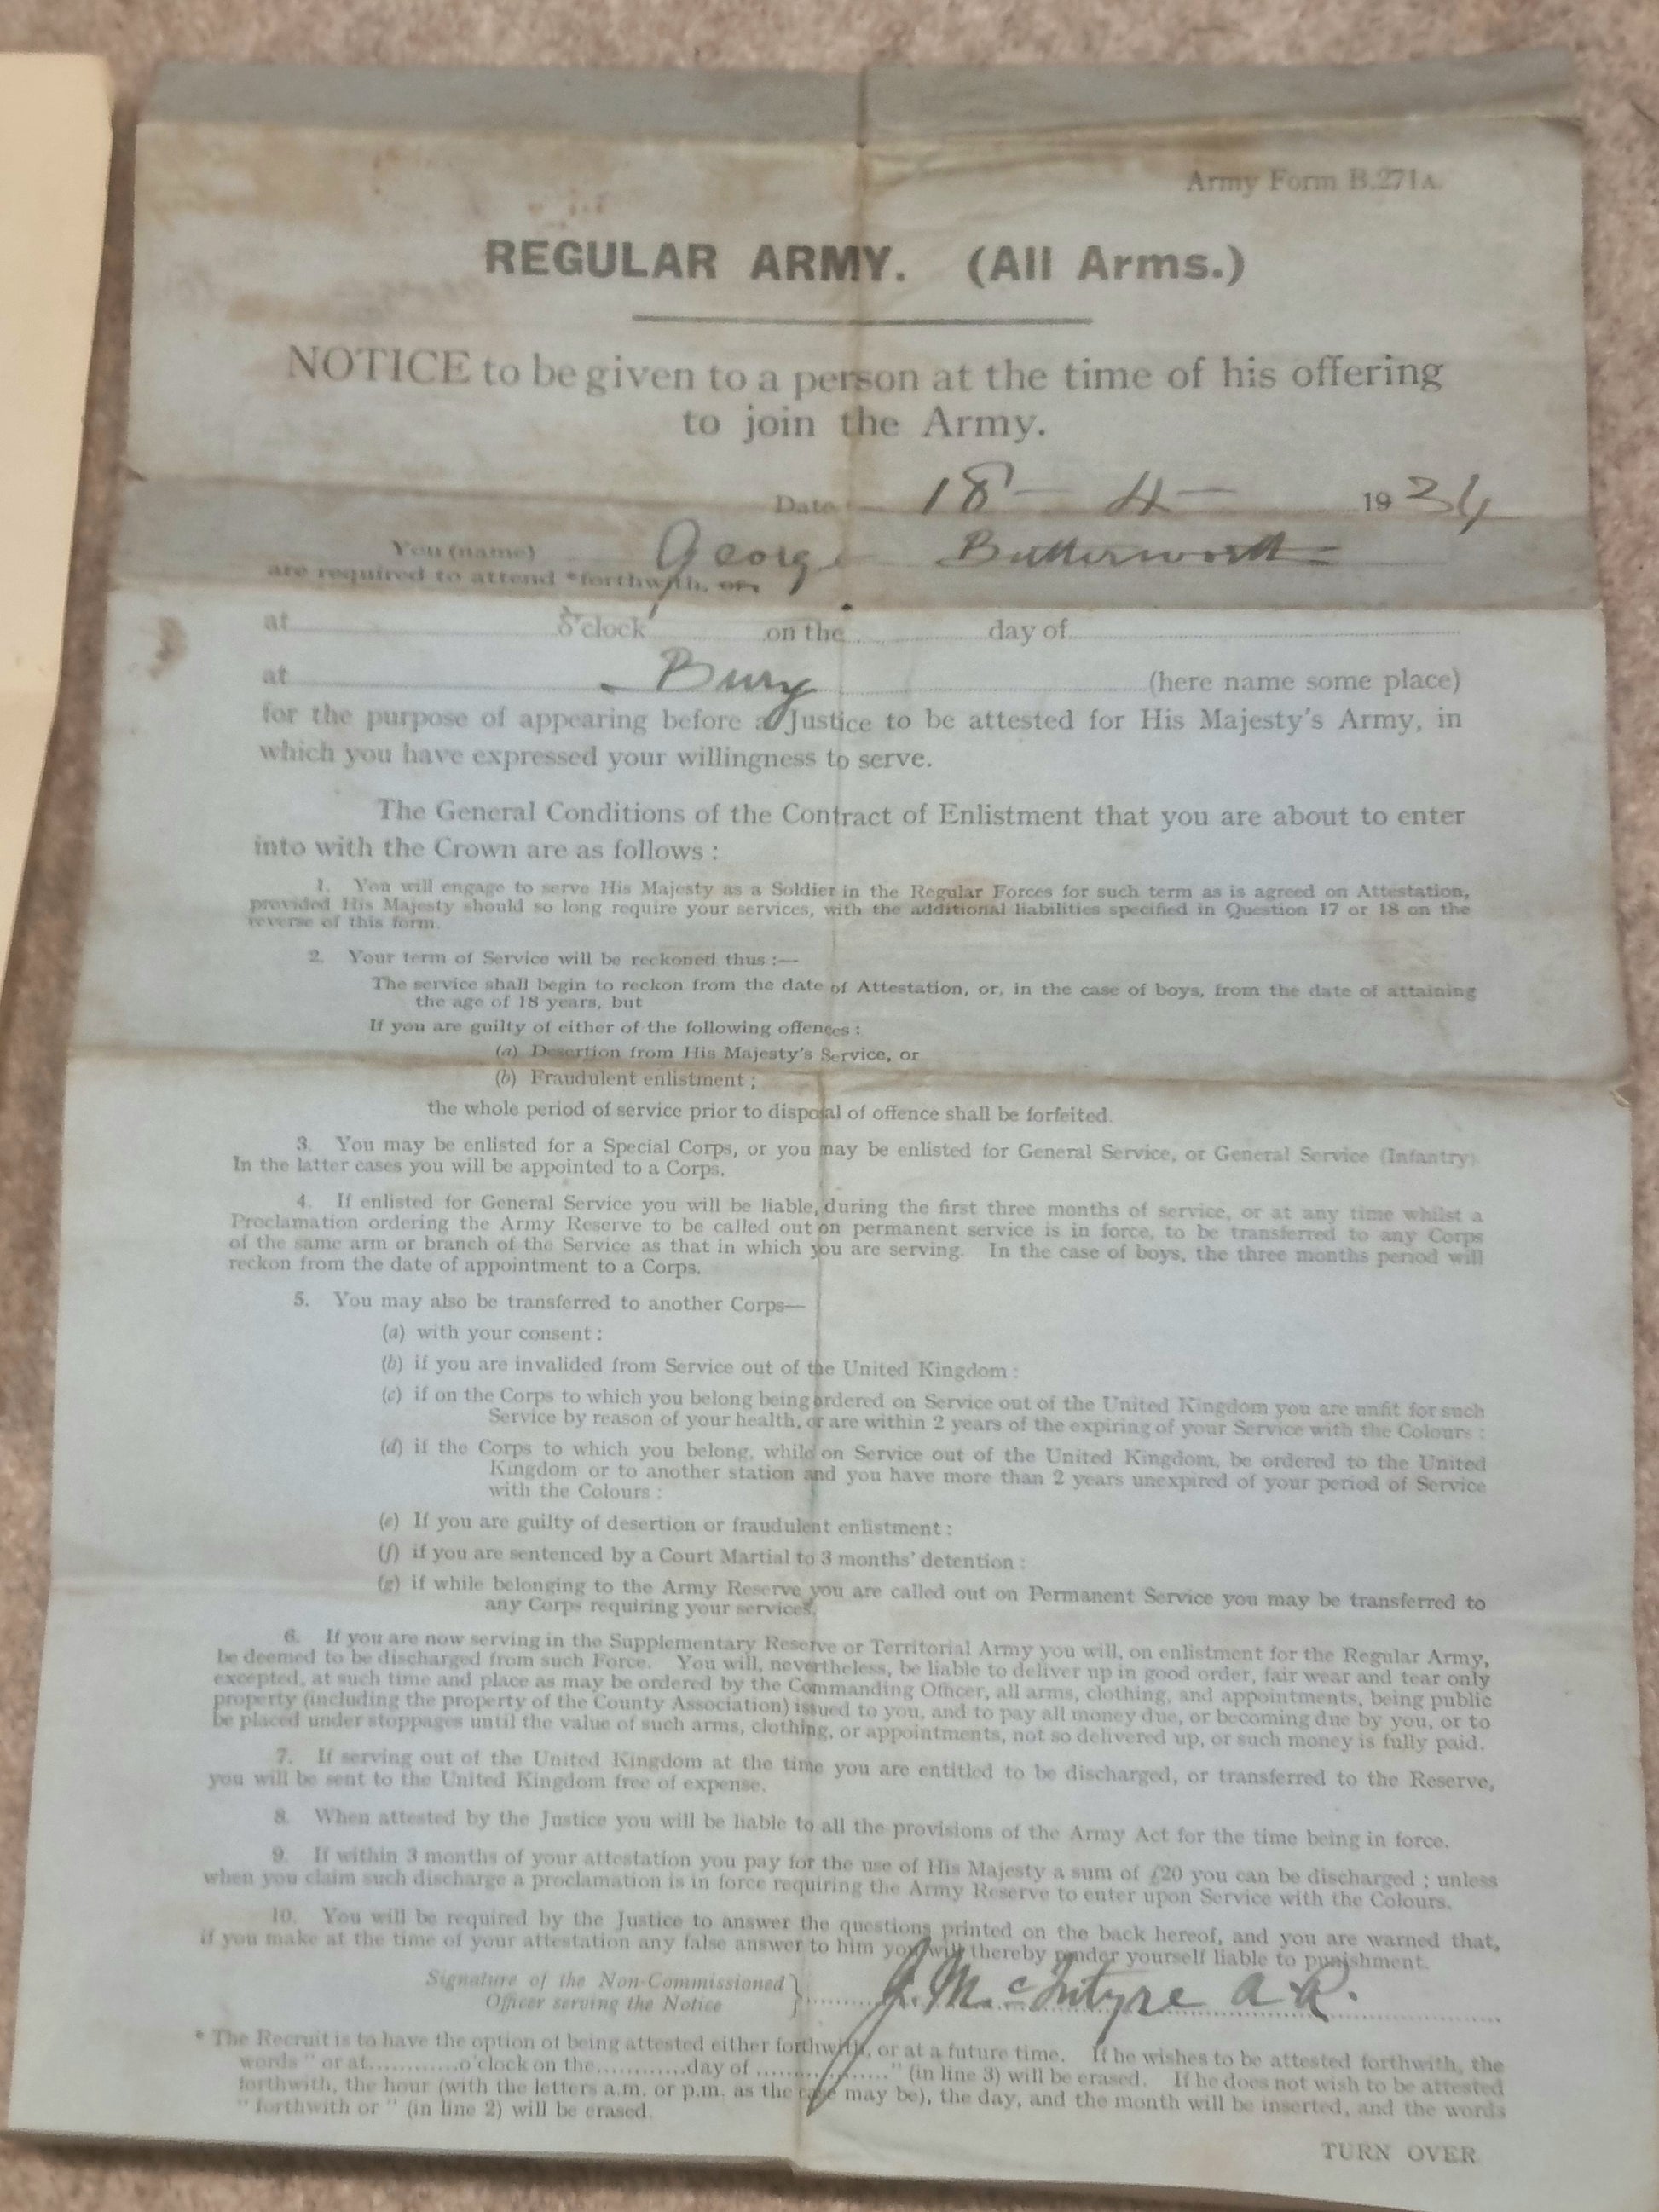 Army Form B.271A.
REGULAR ARMY. (All Arms.)
NOTICE to be given to a person at the time of his offering
to join the Army.
Date 18 - 4 - 1934
You (name) George Butterworth
are required to attend *forthwith, or
at o'clock on the day of
at Bury (here name some place)
for the purpose of appearing before a Justice to be attested for His Majesty's Army, in
which you have expressed your willingness to serve.
The General Conditions of the Contract of Enlistment that you are about to enter
into with the Crown are as follows :
1. You will engage to serve His Majesty as a Soldier in the Regular Forces for such term as is agreed on Attestation,
provided His Majesty should so long require your services, with the additional liabilities specified in Question 17 or 18 on the
reverse of this form.
2. Your term of Service will be reckoned thus :—
The service shall begin to reckon from the date of Attestation, or, in the case of boys, from the date of attaining
the age of 18 years, but
If you are guilty of either of the following offences :
(a) Desertion from His Majesty's Service, or
(b) Fraudulent enlistment ;
the whole period of service prior to disposal of offence shall be forfeited.
3. You may be enlisted for a Special Corps, or you may be enlisted for General Service, or General Service (Infantry)
In the latter cases you will be appointed to a Corps.
4. If enlisted for General Service you will be liable, during the first three months of service, or at any time whilst a
Proclamation ordering the Army Reserve to be called out on permanent service is in force, to be transferred to any Corps
of the same arm or branch of the Service as that in which you are serving. In the case of boys, the three months period will
reckon from the date of appointment to a Corps.
5. You may also be transferred to another Corps—
(a) with your consent :
(b) if you are invalided from Service out of the United Kingdom :
(c) if on the Corps to which you belong being ordered on Service out of the United Kingdom you are unfit for such
Service by reason of your health, or are within 2 years of the expiring of your Service with the Colours :
(d) if the Corps to which you belong, while on Service out of the United Kingdom, be ordered to the United
Kingdom or to another station and you have more than 2 years unexpired of your period of Service
with the Colours :
(e) If you are guilty of desertion or fraudulent enlistment :
(f) if you are sentenced by a Court Martial to 3 months' detention :
(g) if while belonging to the Army Reserve you are called out on Permanent Service you may be transferred to
any Corps requiring your services.
6. If you are now serving in the Supplementary Reserve or Territorial Army you will, on enlistment for the Regular Army,
be deemed to be discharged from such Force. You will, nevertheless, be liable to deliver up in good order, fair wear and tear only
excepted, at such time and place as may be ordered by the Commanding Officer, all arms, clothing, and appointments, being public
property (including the property of the County Association) issued to you, and to pay all money due, or becoming due by you, or to
be placed under stoppages until the value of such arms, clothing, or appointments, not so delivered up, or such money is fully paid.
7. If serving out of the United Kingdom at the time you are entitled to be discharged, or transferred to the Reserve,
you will be sent to the United Kingdom free of expense.
8. When attested by the Justice you will be liable to all the provisions of the Army Act for the time being in force.
9. If within 3 months of your attestation you pay for the use of His Majesty a sum of £20 you can be discharged ; unless
when you claim such discharge a proclamation is in force requiring the Army Reserve to enter upon Service with the Colours.
10. You will be required by the Justice to answer the questions printed on the back hereof, and you are warned that,
if you make at the time of your attestation any false answer to him you will thereby render yourself liable to punishment.
Signature of the Non-Commissioned
Officer serving the Notice } J. McIntyre a.R.
* The Recruit is to have the option of being attested either forthwith, or at a future time. If he wishes to be attested forthwith, the
words " or at............o'clock on the............day of ................." (in line 3) will be erased. If he does not wish to be attested
forthwith, the hour (with the letters a.m. or p.m. as the case may be), the day, and the month will be inserted, and the words
" forthwith or " (in line 2) will be erased.
TURN OVER